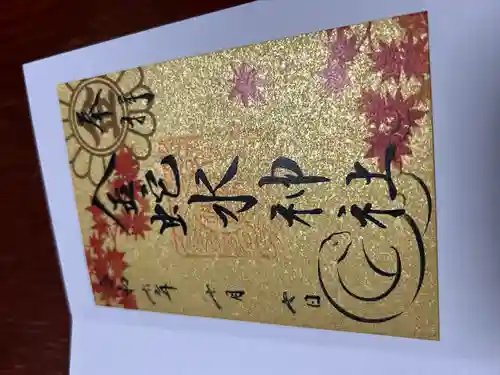 奉拝
金蛇水神社
令和六年十月七日